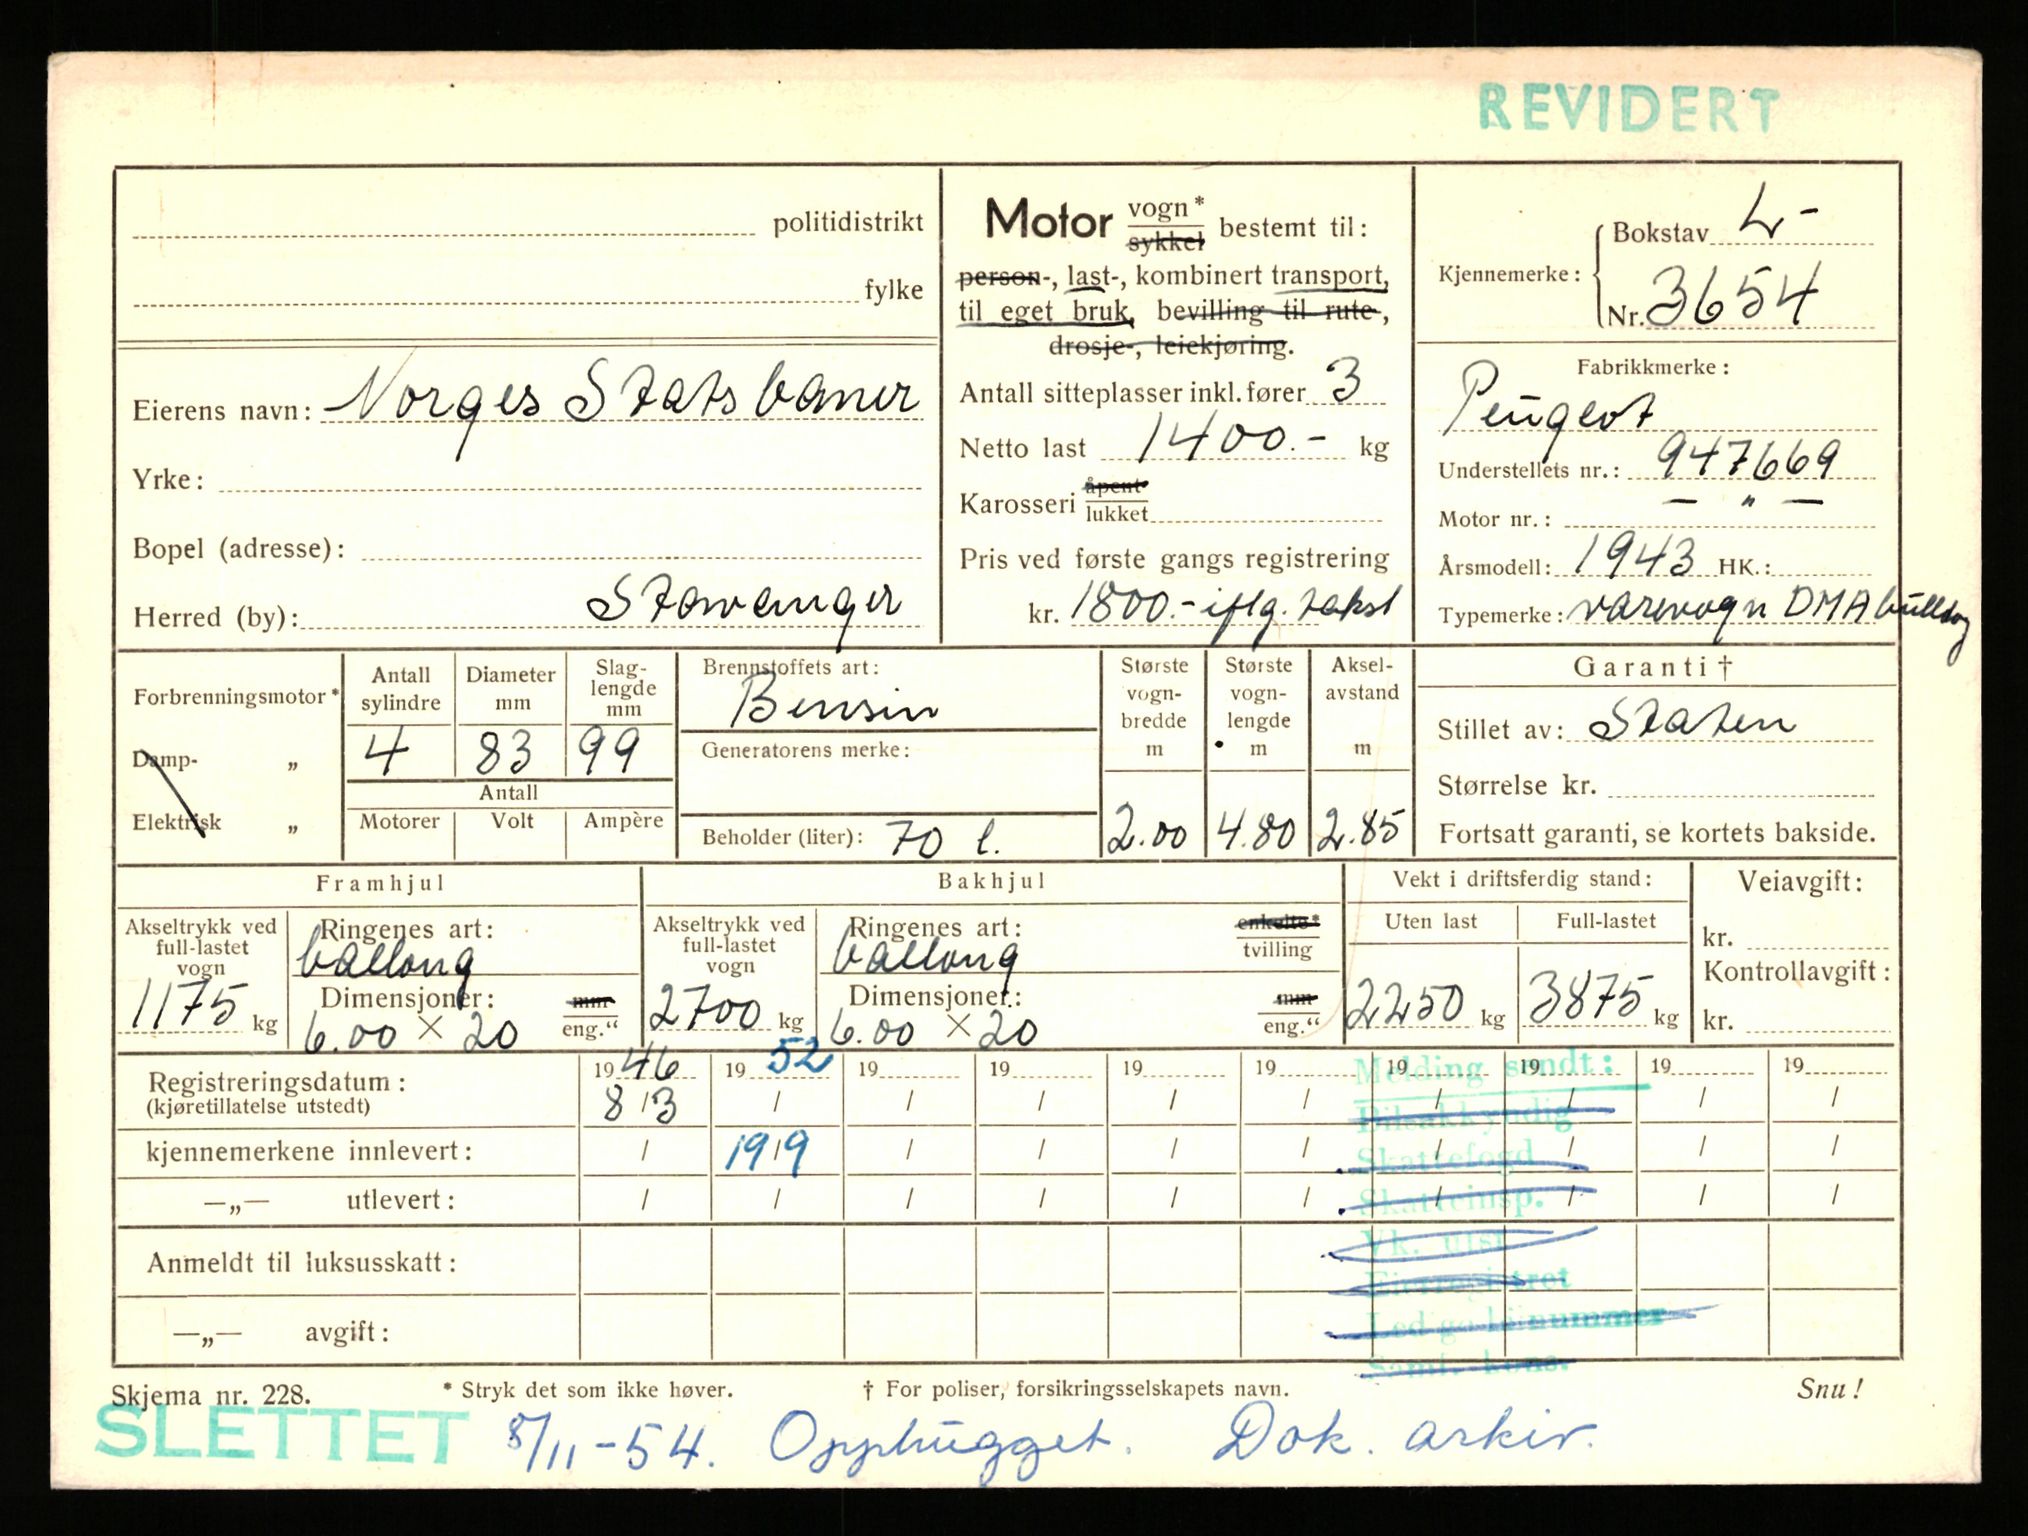 REVIDERT
politidistrikt
fylke
Eierens navn: Norges Statsbaner
Yrke:
Bopel (adresse):
Herred (by): Stavanger
Motor vogn* / sykkel bestemt til:
person-, last-, kombinert transport,
til eget bruk, bevilling til rute-,
drosje-, leiekjøring.
Antall sitteplasser inkl. fører 3
Netto last 1400.- kg
Karosseri åpent / lukket
Pris ved første gangs registrering
kr. 1800.- iflg. takst
Kjennemerke: Bokstav L-
Nr. 3654
Fabrikkmerke:
Peugeot
Understellets nr.: 947669
Motor nr.: — „ —
Årsmodell: 1943 HK.:
Typemerke: varevogn DMA bulldog
Forbrenningsmotor*
Damp- „
Elektrisk „
Antall sylindre 4
Diameter mm 83
Slaglengde mm 99
Antall
Motorer Volt Ampère
Brennstoffets art:
Bensin
Generatorens merke:
Beholder (liter): 70 l.
Største vognbredde m 2.00
Største vognlengde m 4.80
Akselavstand m 2.85
Garanti †
Stillet av: Staten
Størrelse kr.
Fortsatt garanti, se kortets bakside.
Framhjul
Akseltrykk ved full-lastet vogn
1175 kg
Ringenes art:
ballong
Dimensjoner: mm / eng."
6.00 × 20
Bakhjul
Akseltrykk ved full-lastet vogn
2700 kg
Ringenes art: enkelte* / tvilling
ballong
Dimensjoner: mm / eng."
6.00 × 20
Vekt i driftsferdig stand:
Uten last Full-lastet
2250 kg 3875 kg
Veiavgift:
kr.
Kontrollavgift:
kr.
Registreringsdatum: 1946 1952 19 19 19 19 19 19 19 19
(kjøretillatelse utstedt) 8/3 / / / / / / / / /
kjennemerkene innlevert: / 19/9 / / / / / / / /
—„— utlevert: / / / / / / / / / /
Anmeldt til luksusskatt:
—„— avgift:
Melding sendt:
Bilsakkyndig
Skattefogd
Skatteinsp.
Vk. utst
Eierregistret
Led. godk.nummer
Samt. kons.
Skjema nr. 228. * Stryk det som ikke høver. † For poliser, forsikringsselskapets navn. Snu!
SLETTET 8/11-54. Opphugget. Dok. arkiv.